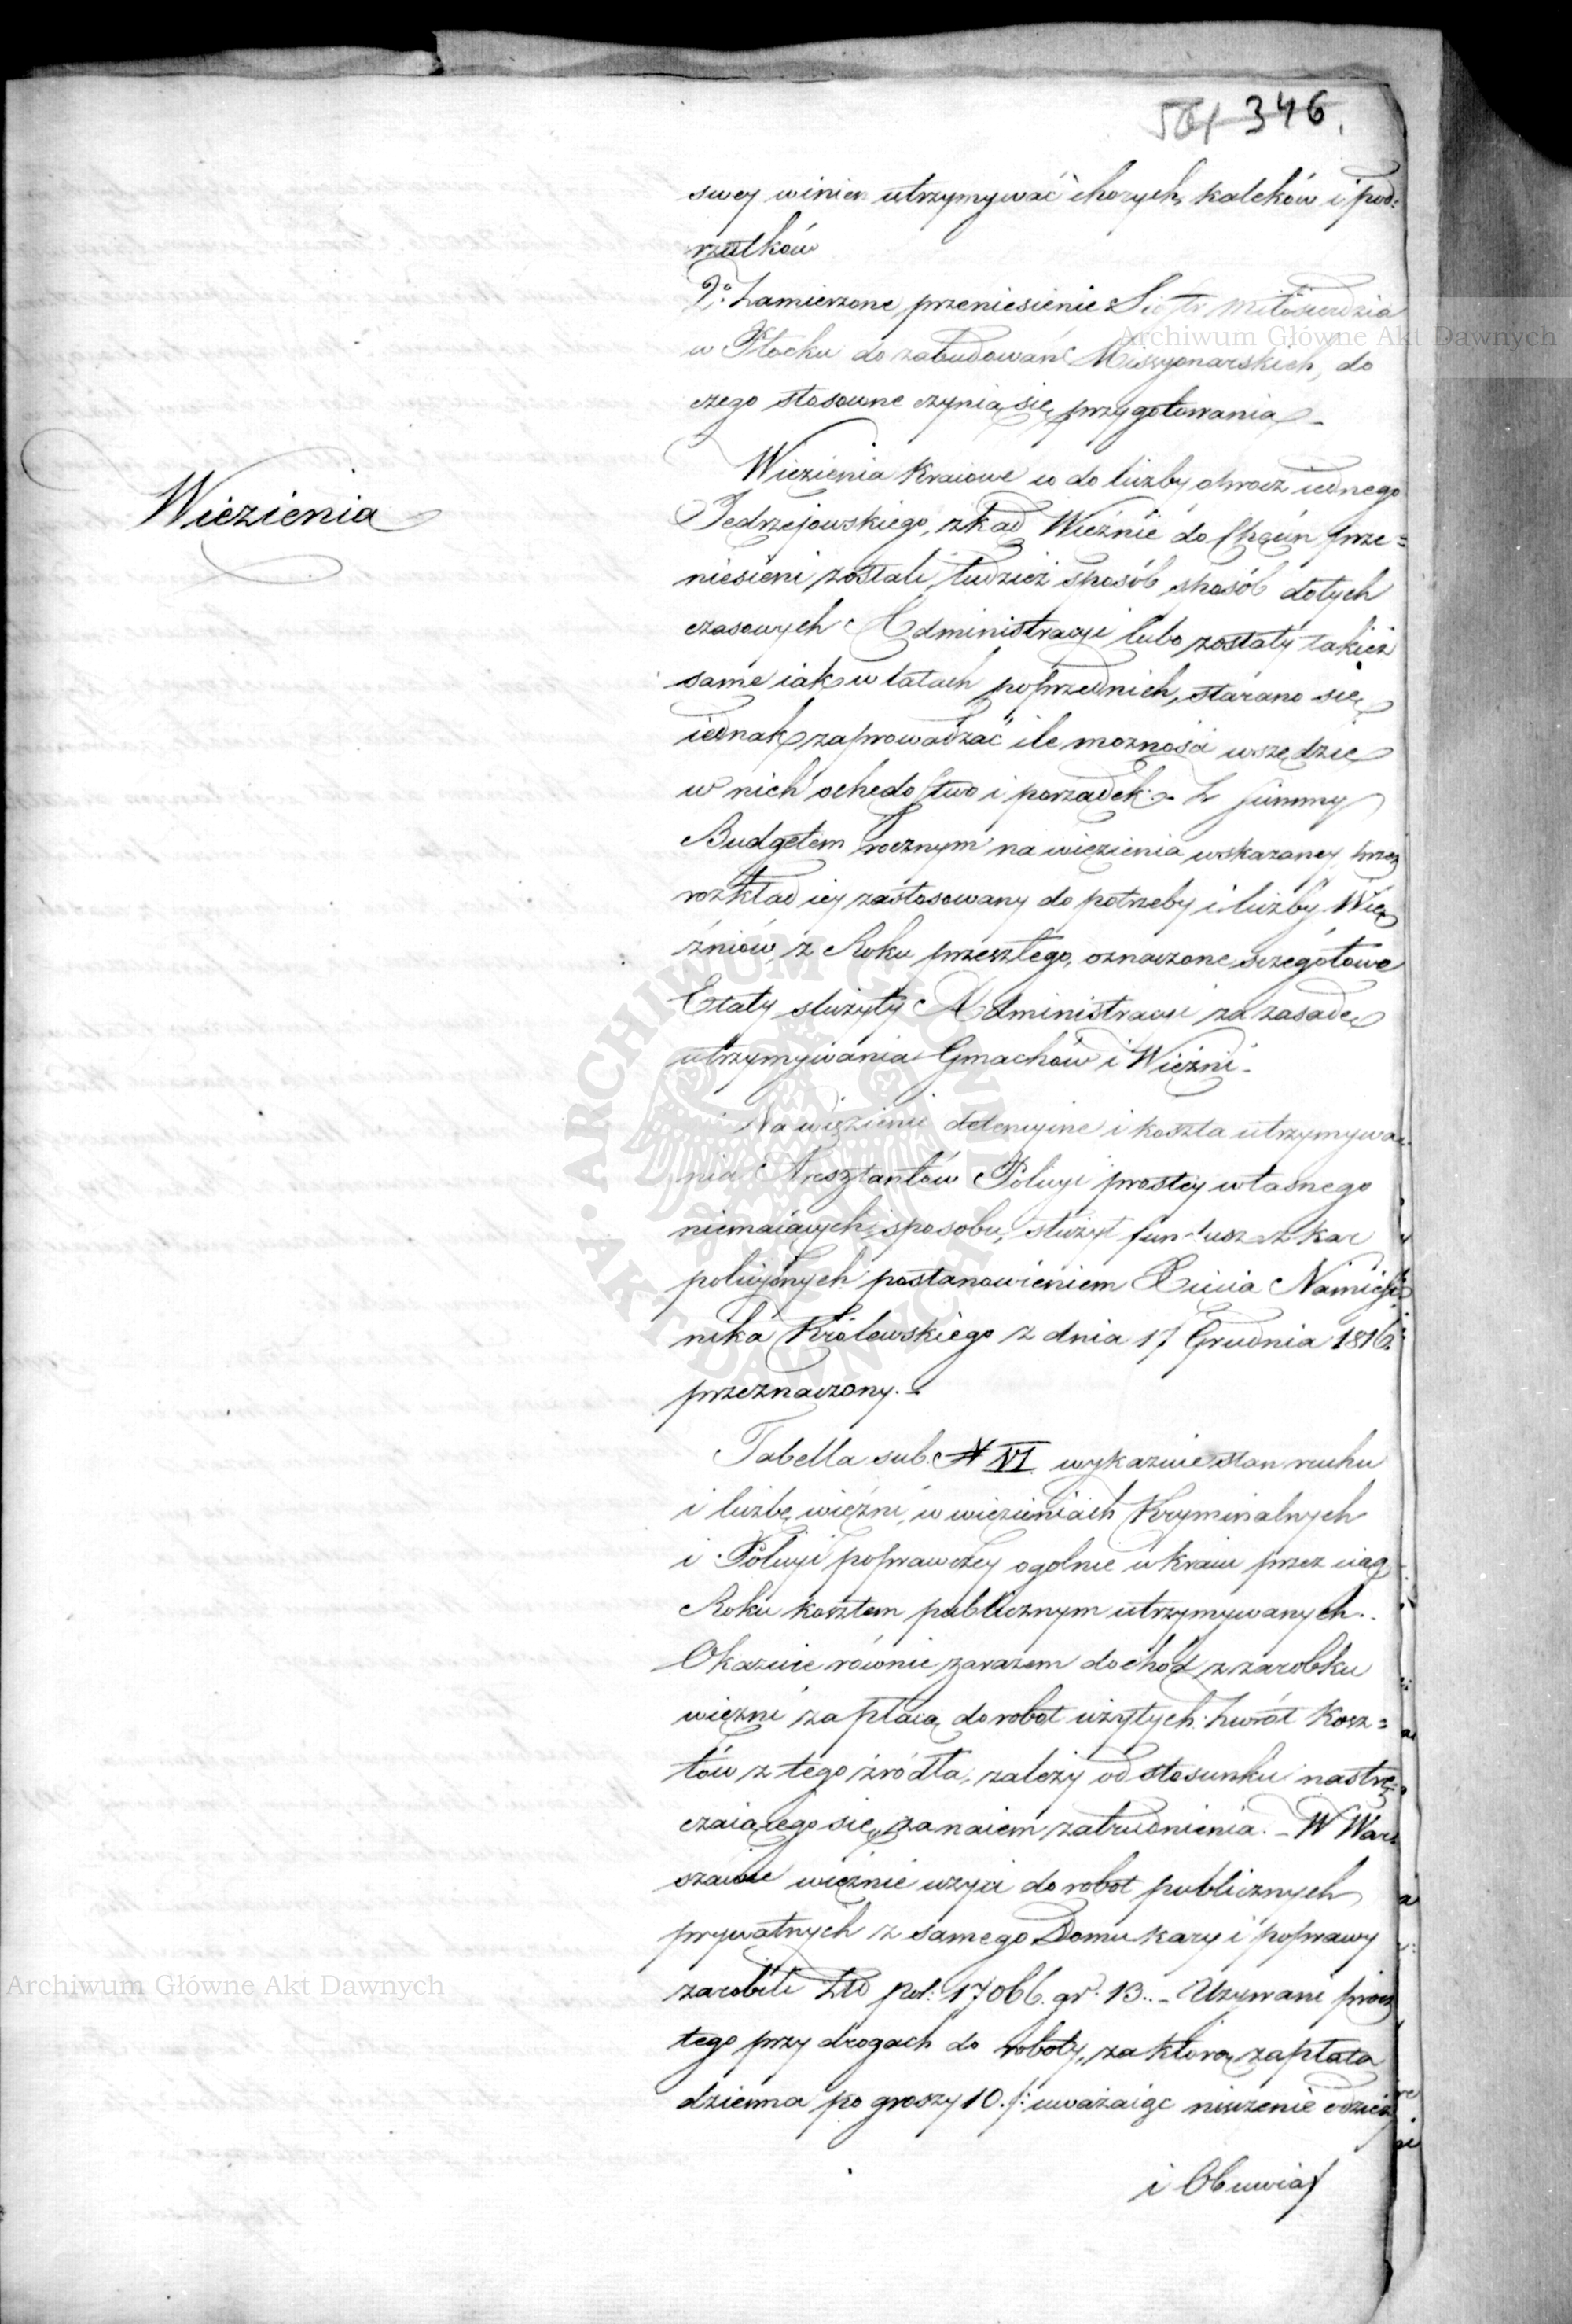 346.
swey winien utrzymywać chorych, kaleków i pod:
rzutków
2º Zamierzone przeniesienie Siostr Miłosierdzia
Archiwum Główne Akt Dawnych
w Płocku do zabudowań Missyonarskich, do
czego stosowne czynią się przygotowania
Wiezienia
Wiezienia Kraiowe co do liczby oprocz iednego
Jedrzejowskiego, zkąd Więźnie do Chęcin prze=
niesieni zostali, tudzież sposób sposób dotych
czasowych Administracyi lubo zostały takież
same iak w latach poprzednich, starano się
iednak zaprowadzać ile moznosci wszędzie
w nich ochędostwo i porządek - Z summy
Budgetem rocznym na więzienia wskazaney, przez
rozkład iey zastosowany do potrzeby i liczby Wię
źniow z Roku przeszłego, oznaczone szczegołowe
Etaty służyły Administracyi za zasadę
utrzymywania Gmachów i Więźni -
Na więzienie detencyine i koszta utrzymywa
nia Aresztantów Policyi prostey własnego
niemaiących sposobu, służył fundusz z kar
policyinych postanowieniem Xięcia Namiest
nika Królewskiego z dnia 17 Grudnia 1816.
przeznaczony. -
Tabella sub. N VI. wykazuie stan ruchu
i liczbę więźni, w więzieniach Kryminalnych
i Policyi poprawczey ogolnie w kraiu przez ciąg
Roku kosztem publicznym utrzymywanych.
Okazuie równie zarazem dochód z zarobku
więźni za płacą do robot użytych. Zwrót Kosz=
tów z tego źródła, zależy od stosunku nastrę
czaiącego się za naiem zatrudnienia. - W War
szawie więźnie uzyci do robot publicznych
prywatnych z samego Domu kary i poprawy
zarobili Zło pol: 17066. gr. 13. - Uzywani prócz
Archiwum Główne Akt Dawnych
tego przy drogach do roboty, za którą zapłata
dzienna po groszy 10. /: uważaiąc niszczenie odzieży
i Obuwia/
ARCHIWUM GŁÓWNE AKT DAWNYCH